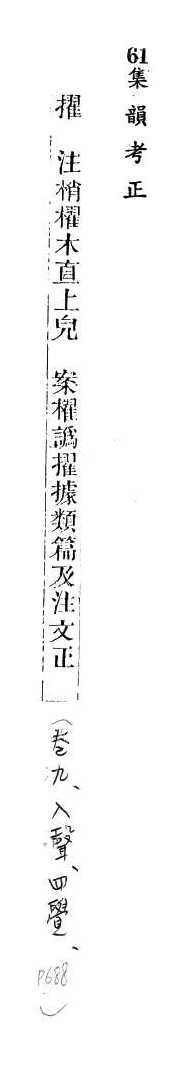 61集韻考正
擢　注梢櫂木直上皃　案櫂譌擢據類篇及注文正（卷九、入聲、四覺、P688）